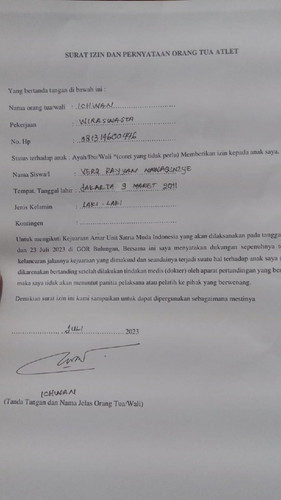 SURAT IZIN DAN PERNYATAAN ORANG TUA ATLET
Yang bertanda tangan di bawah ini :
Nama orang tua/wali : ICHWAN
Pekerjaan : WIRASWASTA
No. Hp :
Status terhadap anak : Ayah/Ibu/Wali *(coret yang tidak perlu) Memberikan izin kepada anak saya,
Nama Siswa/i :
Tempat, Tanggal lahir : JAKARTA 9 MARET 2011
Jenis Kelamin : LAKI - LAKI
Kontingen :
Untuk mengikuti Kejuaraan Antar Unit Satria Muda Indonesia yang akan dilaksanakan pada tangga
dan 23 Juli 2023 di GOR Bulungan. Bersama ini saya menyatakan dukungan sepenuhnya t
kelancaran jalannya kejuaraan yang dimaksud dan seandainya terjadi suatu hal terhadap anak saya
dikarenakan bertanding setelah dilakukan tindakan medis (dokter) oleh aparat pertandingan yang ber
maka saya tidak akan menuntut panitia pelaksana atau pelatih ke pihak yang berwenang.
Demikian surat izin ini kami sampaikan untuk dapat dipergunakan sebagaimana mestinya
JULI 2023
ICHWAN
(Tanda Tangan dan Nama Jelas Orang Tua/Wali)